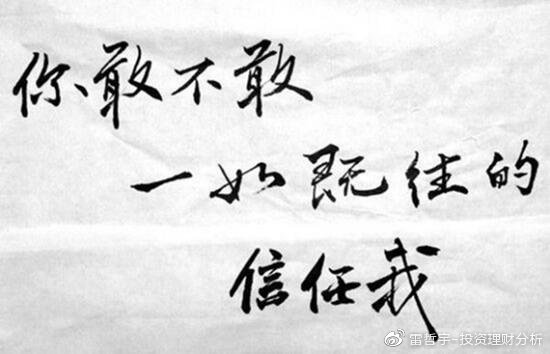 你敢不敢
一如既往的
信任我
雷哲宇-投资理财分析